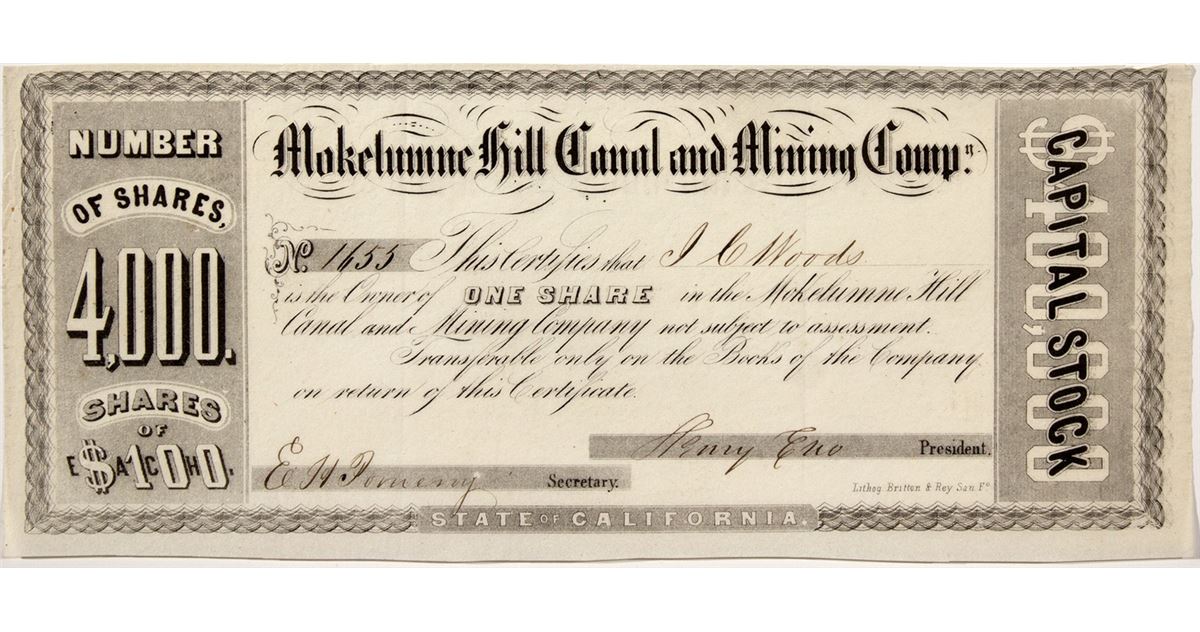 NUMBER
OF SHARES,
4,000.
SHARES
OF
$100.
EACH
Mokelumne Hill Canal and Mining Compy.
No. 1655 This Certifies that I C Woods
is the Owner of ONE SHARE in the Mokelumne Hill
Canal and Mining Company not subject to assessment.
Transferable only on the Books of the Company
on return of this Certificate.
Henry Eno President.
E H Pomeroy Secretary.
Lithog. Britton & Rey San Fo.
STATE OF CALIFORNIA.
CAPITAL STOCK
$400,000